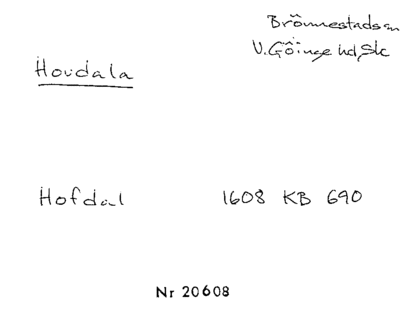 Brönnestads sn
V. Göinge hd, Sk
Hovdala
Hofdal 1608 KB 690
Nr 20608